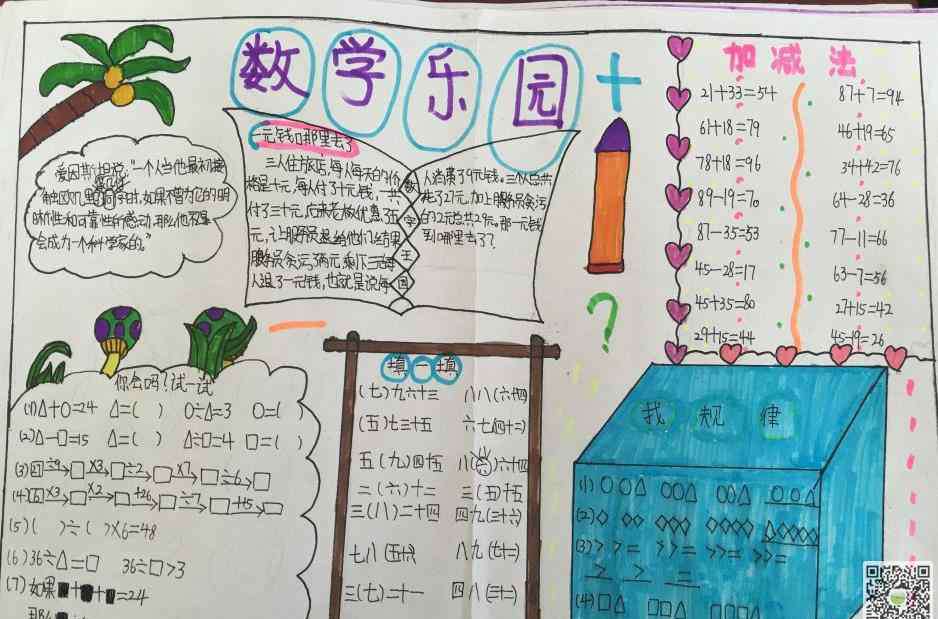 数学乐园
加减法
21+33=54 87+7=94
61+18=79 46+19=65
78+18=96 34+42=76
89-19=70 64-28=36
87-35=53 77-11=66
45-28=17 63-7=56
45+35=80 27+15=42
29+15=44 45-19=26
爱因斯坦说:"一个人当他最初接
触欧几里得几何学时,如果不曾为它的明
晰性和可靠性的感动,那么他不
会成为一个科学家的。"
一元钱哪里去了
三人住旅店,每人每天的价
格是十元,每人付了十元钱,一共
付了三十元,后来老板优惠了五
元,让服务员退给他们,结果
服务员贪污了两元,剩下三元每
人退了一元钱,也就是说每
数字王国
人消费了9元钱。三个人总共
花了27元,加上服务员贪污
的2元总共29元。那一元钱
到哪里去了?
你会吗?试一试
(1)△+○=24 △=( ) ○÷△=3 ○=( )
(2)△-□=15 △=( ) △÷□=4 □=( )
(5)( )÷( )×6=48
(6)36÷△=□ 36÷□>3
(7)如果
=24
填一填
(七)九六十三 八八(六十四)
(五)七三十五 六七(四十二)
五(九)四十五 八(八)六十四
二(六)十二 三(五)十五
三(八)二十四 四九(三十六)
七八(五十六) 八九(七十二)
三(七)二十一 四八(三十二)
找规律
(1)○○△ ○○△ ○○△ ○○△
(2)◇ ◇◇ ◇◇◇ ◇◇◇◇ ◇◇◇◇◇
(3)>>= >>= >>= >>=
> > =
(4)□△ □□△ □□□△